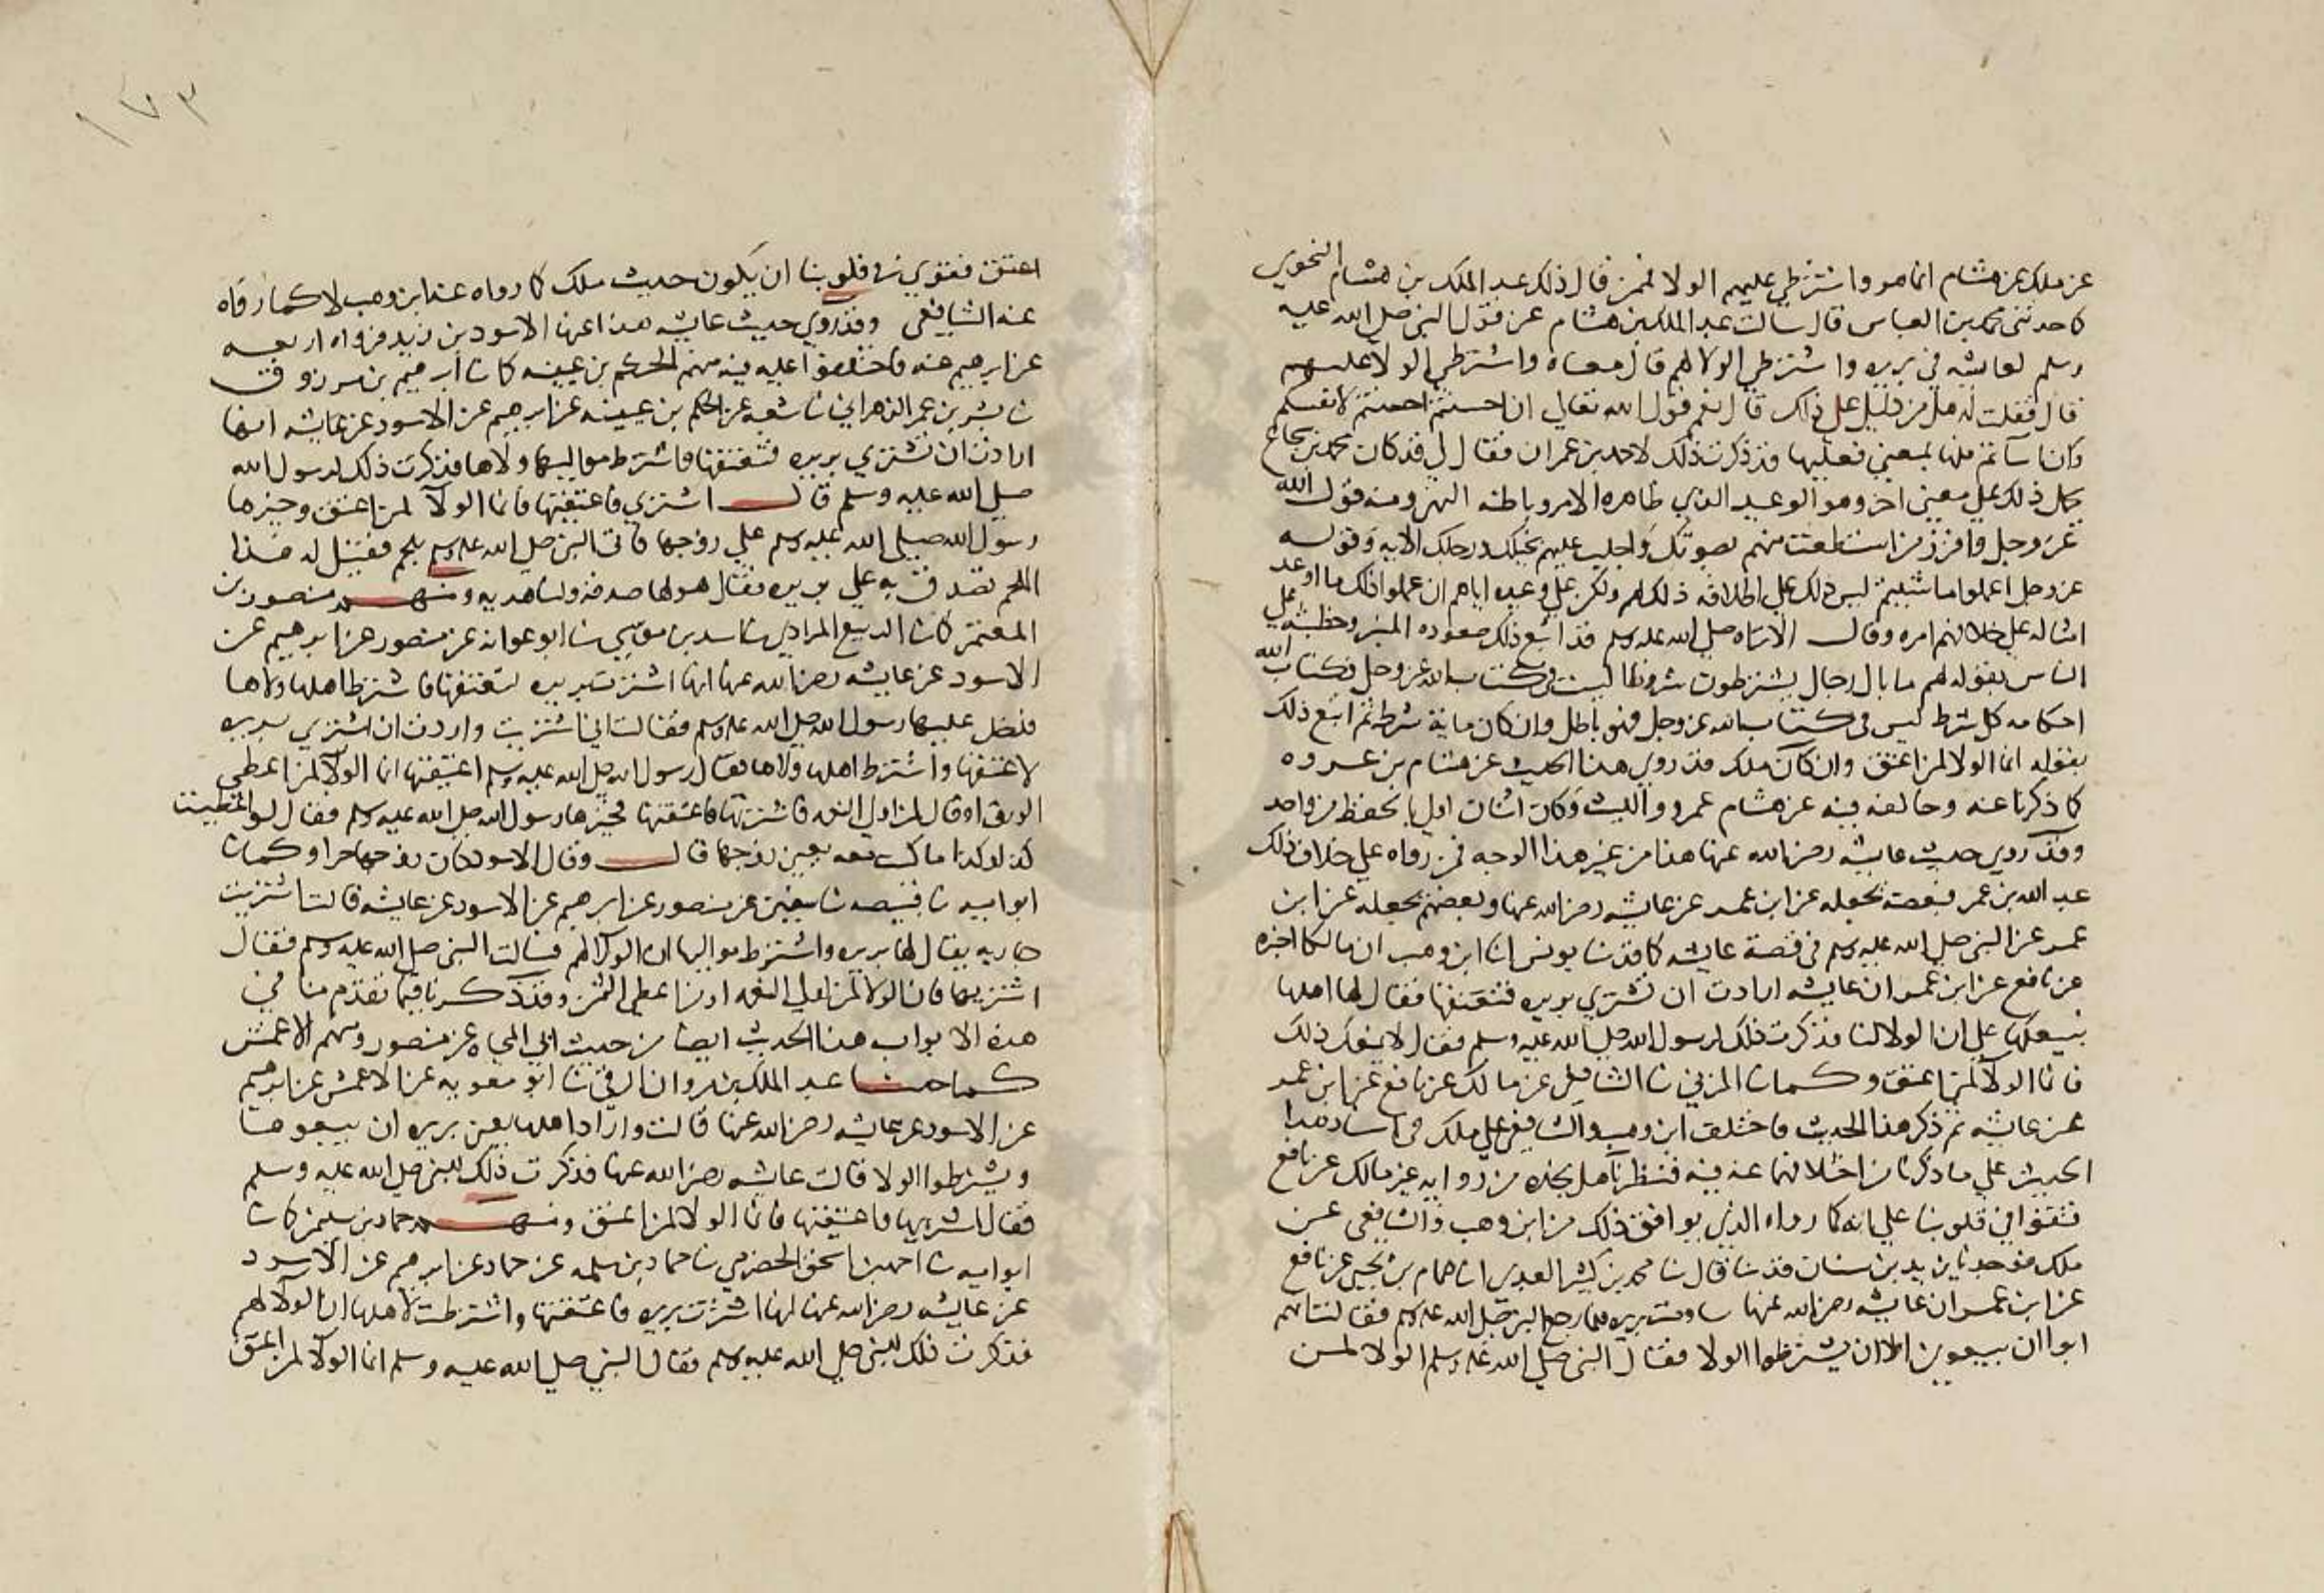 عن ملك عن هشام انما هو واشترطي عليهم الولا لمن قال ذلك عبد الملك بن هشام النحوي
كما حدثني محمد بن العباس قال سالت عبد الملك بن هشام عن قول النبي صلى الله عليه
وسلم لعايشه في بريره واشترطي الولا لهم قال معناه واشترطي الولا عليهم
قال فقلت له هل من دليل على ذلك قال نعم قول الله تعالى ان احسنتم احسنتم لانفسكم
وان اساتم فلها بمعني فعليها فذكرت ذلك لاحمد بن عمران فقال لي قد كان محمد بن شجاع
يحمل ذلك على معني اخر وهو الوعيد الذي ظاهره الامر وباطنه النهي ومنه قول الله
عز وجل واستفزز من استطعت منهم بصوتك واجلب عليهم بخيلك ورجلك الايه وقوله
عز وجل اعملوا ما شئتم ليس ذلك على اطلاقه ذلك لهم ولكن على وعيده اياهم ان عملوا ذلك ما اوعد
امثاله على خلافهم امره وقال الا تراه صلى الله عليه وسلم قد اتبع ذلك صعوده المنبر وخطبته على
الناس بقوله لهم ما بال رجال يشترطون شروطا ليست في كتاب الله عز وجل وكتاب الله
احكامه كل شرط ليس في كتاب الله عز وجل فهو باطل وان كان ماية شرط ثم اتبع ذلك
بقوله انما الولا لمن اعتق وان كان ملك قد روي هذا الحديث عن هشام بن عروه
كما ذكرنا عنه وخالفه فيه عن هشام عمرو والليث وكان اثنان اولى بالحفظ من واحد
وقد روي حديث عايشه رضي الله عنها هذا من غير هذا الوجه فمن رواه على خلاف ذلك
عبد الله بن عمر فبعضهم يجعله عن ابن عمر عن عايشه رضي الله عنها وبعضهم يجعله عن ابن
عمر عن النبي صلى الله عليه وسلم في قصة عايشه كما قد نا يونس انا ابن وهب ان مالكا اخبره
عن نافع عن ابن عمر ان عايشه ارادت ان تشتري بريره فتعتقها فقال لها اهلها
نبيعكها على ان الولا لنا فذكرت ذلك لرسول الله صلى الله عليه وسلم فقال لا يمنعك ذلك
فانما الولا لمن اعتق وكما نا المزني نا الشافعي عن مالك عن نافع عن ابن عمر
عن عايشه ثم ذكر هذا الحديث فاختلف ابن وهب والشافعي على ملك في اسناد هذا
الحديث على ما ذكرنا من اختلافهما عنه فيه فنظرنا هل نجده من روايه غير مالك عن نافع
فتقوا في قلوبنا على انه كما رواه الذي يوافق ذلك من ابن وهب والشافعي عن
ملك فوجدنا يزيد بن سنان قد نا قال نا محمد بن كثير العبدي انا همام بن يحيى عن نافع
عن ابن عمر ان عايشه رضي الله عنها ساومت بريره فلما رجع النبي صلى الله عليه وسلم فقالت انهم
ابوا ان يبيعوني الا ان يشترطوا الولا فقال النبي صلى الله عليه وسلم الولا لمن
١٧٣
اعتق فقوي في قلوبنا ان يكون حديث ملك كما رواه عنه ابن وهب لا كما رواه
عنه الشافعي وقد روي حديث عايشه هذا عنها الاسود بن زيد فرواه اربعه
عن ابرهيم عنه فاختلفوا عليه فيه منهم الحكم بن عيينه كما نا ابرهيم بن مرزوق
نا بشر بن عمر الزهراني نا شعبه عن الحكم بن عيينه عن ابرهيم عن الاسود عن عايشه انها
ارادت ان تشتري بريره فتعتقها فاشترط مواليها ولاها فذكرت ذلك لرسول الله
صلى الله عليه وسلم قال اشتري فاعتقيها فانما الولا لمن اعتق وخيرها
رسول الله صلى الله عليه وسلم على زوجها فاتى النبي صلى الله عليه وسلم بلحم فقيل له هذا
اللحم تصدق به على بريره فقال هو لها صدقه ولنا هديه ومنهم منصور بن
المعتمر كما نا الربيع المرادي نا اسد بن موسي نا ابو عوانه عن منصور عن ابرهيم عن
الاسود عن عايشه رضي الله عنها انها اشترت بريره لتعتقها فاشترط اهلها ولاها
فدخل عليها رسول الله صلى الله عليه وسلم فقالت اني اشتريت واردت ان اشتري بريره
لاعتقها واشترط اهلها ولاها فقال رسول الله صلى الله عليه وسلم اعتقيها انما الولا لمن اعطى
الورق او قال لمن اولى النعمه فاشترتها فاعتقتها فخيرها رسول الله صلى الله عليه وسلم فقال لو اعطيت
كذا وكذا ما كنت معه يعني زوجها قال وقال الاسود كان زوجها حرا وكما نا
ابو اميه نا قبيصه نا سفين عن منصور عن ابرهيم عن الاسود عن عايشه قالت اشتريت
جاريه يقال لها بريره واشترط مواليها ان الولا لهم فسالت النبي صلى الله عليه وسلم فقال
اشتريها فان الولا لمن اولى النعمه او لمن اعطى الثمن وقد ذكرنا فيما تقدم منا في
هذه الابواب هذا الحديث ايضا من حديث ابي المحياه عن منصور ومنهم الاعمش
كما حدثنا عبد الملك بن مروان الرقي نا ابو معويه عن الاعمش عن ابرهيم
عن الاسود عن عايشه رضي الله عنها قالت واراد اهلها يعني بريره ان يبيعوها
ويشترطوا الولا قالت عايشه رضي الله عنها فذكرت ذلك للنبي صلى الله عليه وسلم
فقال اشتريها فاعتقيها فانما الولا لمن اعتق ومنهم حماد بن سليمن كما نا
ابو اميه نا احمد بن اسحق الحضرمي نا حماد بن سلمه عن حماد عن ابرهيم عن الاسود
عن عايشه رضي الله عنها انها اشترت بريره فاعتقتها واشترطت لاهلها ان الولا لهم
فذكرت ذلك للنبي صلى الله عليه وسلم فقال النبي صلى الله عليه وسلم انما الولا لمن اعتق